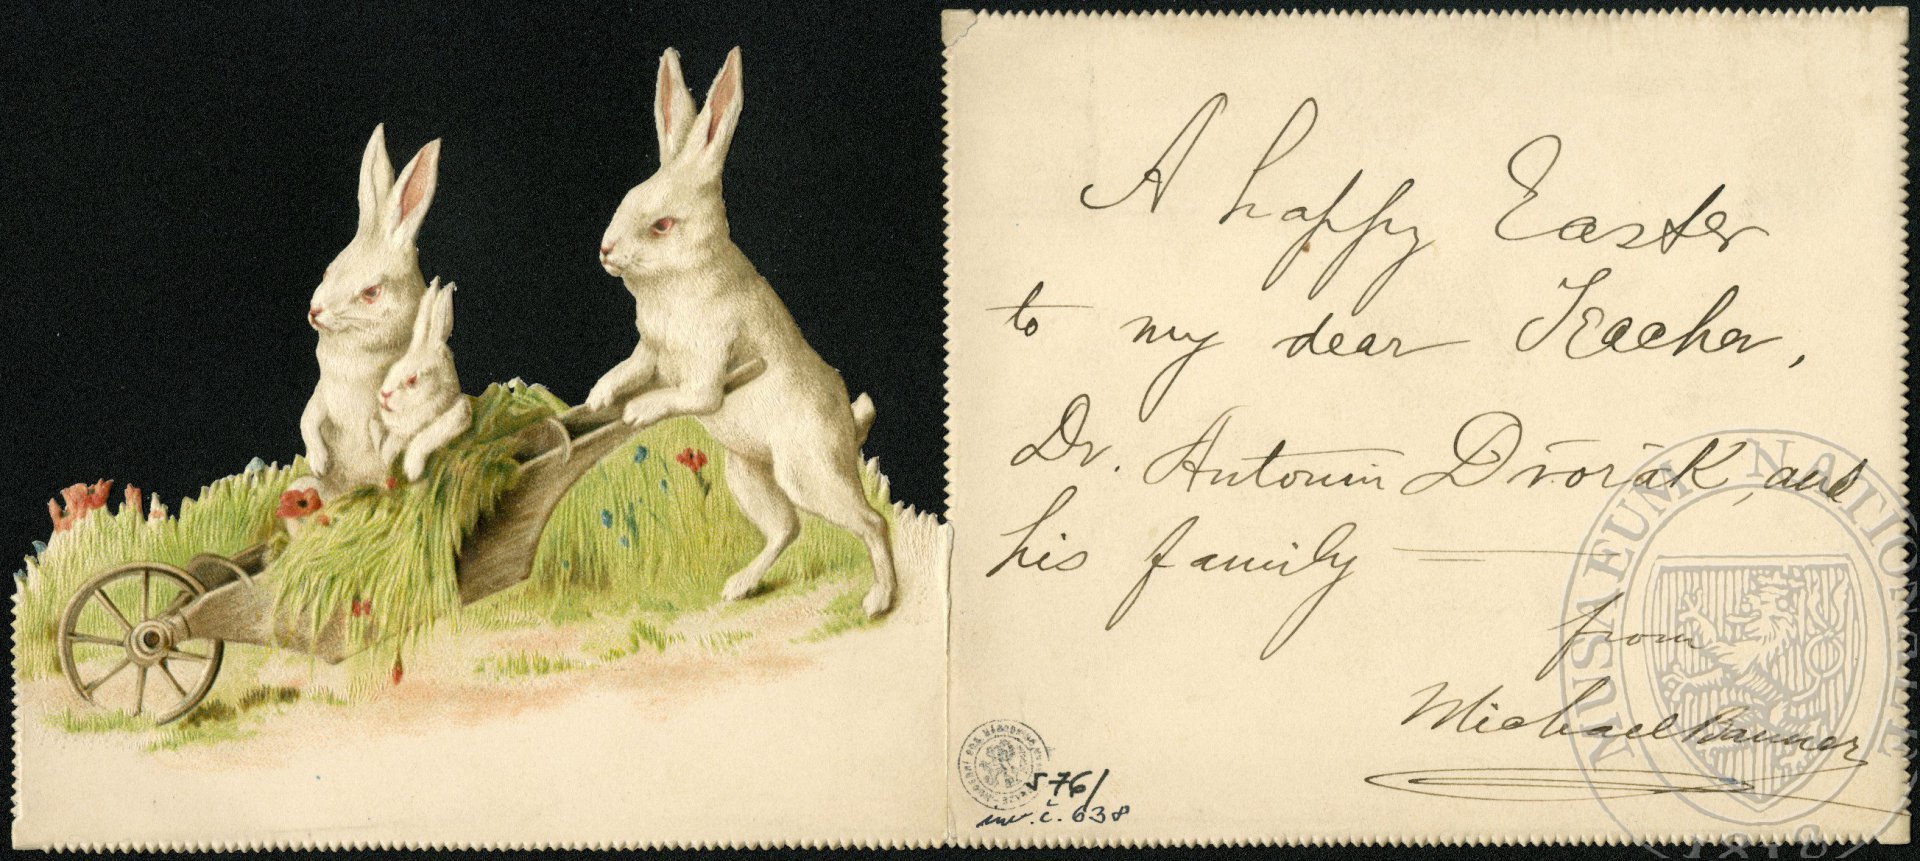 A happy Easter
to my dear Teacher,
Dr. Antonin Dvořák, and
his family
from
Michael Banner
576/
inv. č. 638
MUSAEUM NATIONALE
1818